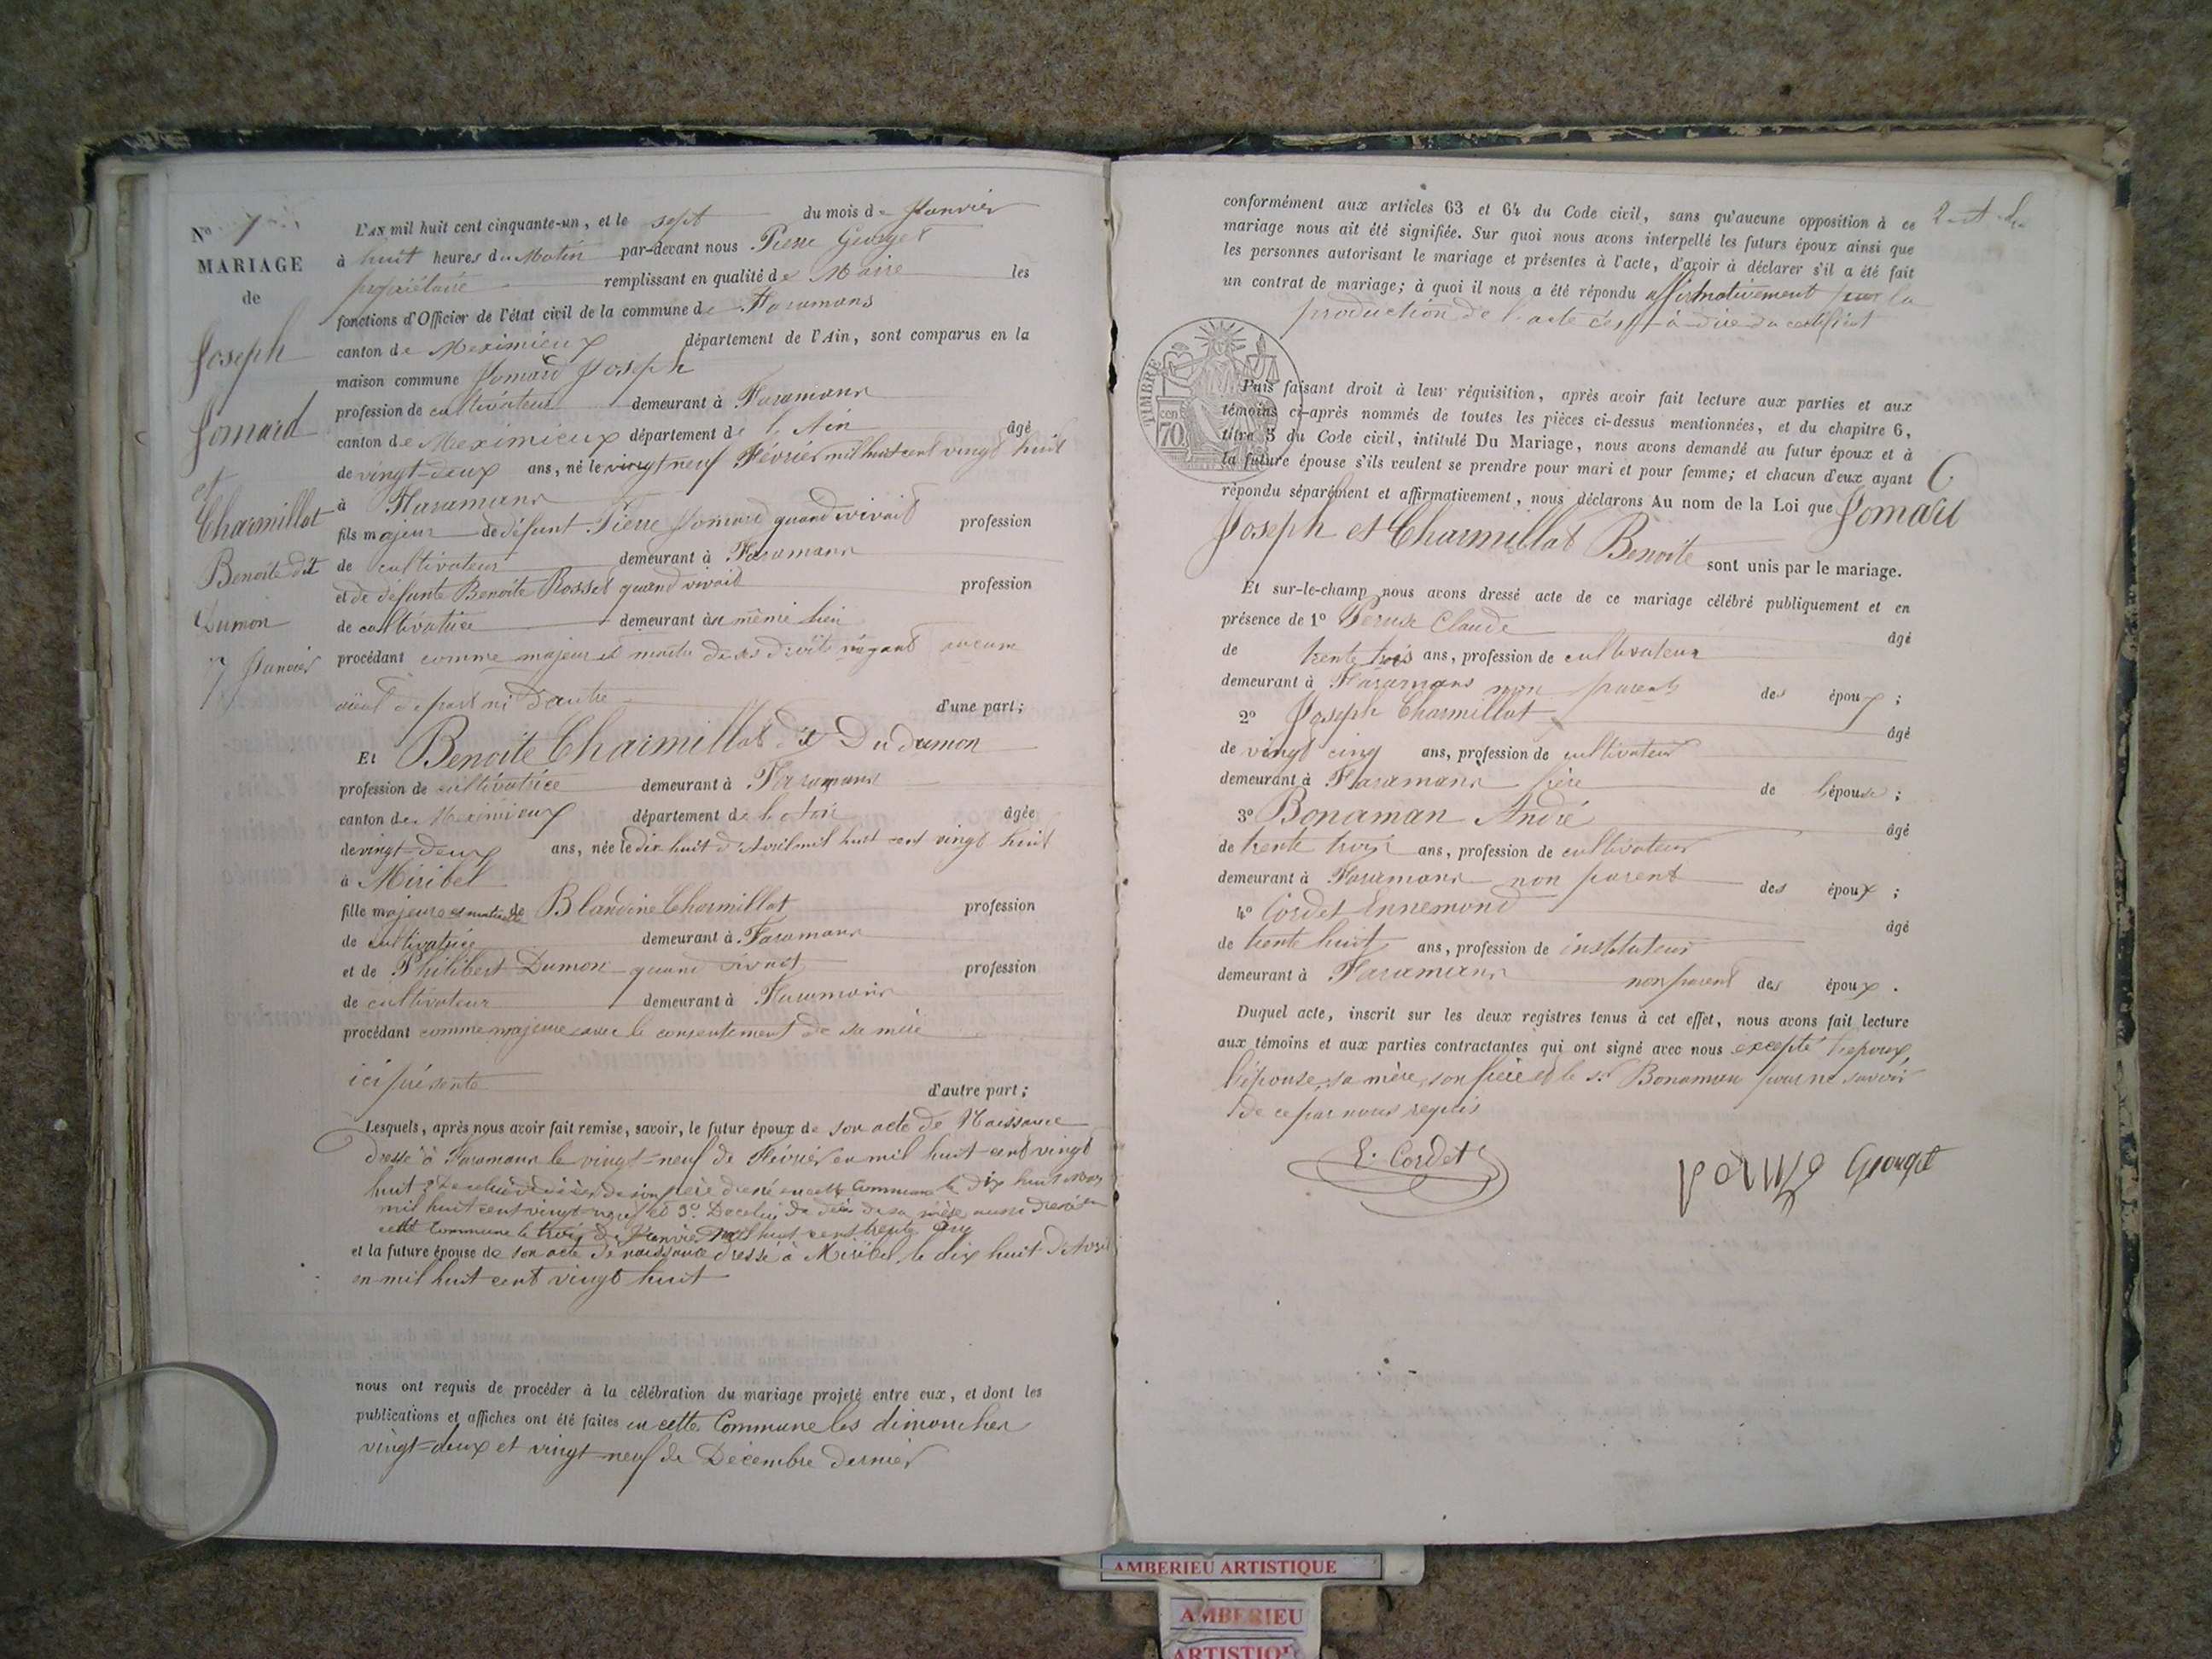 N° 1
MARIAGE
de
Joseph
Jomard
et
Charmillot
Benoite dit
Dumon
7 Janvier
L'AN mil huit cent cinquante-un, et le sept du mois de Janvier
à huit heures du Matin par-devant nous Pierre Georget
propriétaire remplissant en qualité de Maire les
fonctions d'Officier de l'état civil de la commune de Faramans
canton de Meximieux département de l'Ain, sont comparus en la
maison commune Jomard Joseph
profession de cultivateur demeurant à Faramans
canton de Meximieux département de l'Ain âgé
de vingt-deux ans, né le vingt neuf Février mil huit cent vingt huit
à Faramans
fils majeur de défunt Pierre Jomard quand vivait profession
de cultivateur demeurant à Faramans
et de défunte Benoite Rosset quand vivait profession
de cultivatrice demeurant au même lieu
procédant comme majeur et maitre de ses droits n'ayant aucun
aïeul de part ni d'autre d'une part;
Et Benoite Charmillot dit Dudumon
profession de cultivatrice demeurant à Faramans
canton de Meximieux département de l'Ain âgée
de vingt-deux ans, née le dix huit d'Avril mil huit cent vingt huit
à Miribel
fille majeure et naturelle de Blandine Charmillot profession
de cultivatrice demeurant à Faramans
et de Philibert Dumon quand vivait profession
de cultivateur demeurant à Faramans
procédant comme majeure avec le consentement de sa mère
ici présente d'autre part;
Lesquels, après nous avoir fait remise, savoir, le futur époux de son acte de Naissance
dressé à Faramans le vingt-neuf de Février en mil huit cent vingt
huit 2° De celui de décès de son père dressé en cette Commune le dix huit
mil huit cent vingt-neuf et 3° De celui de décès de sa mère aussi dressé en
cette Commune le trois de Janvier mil huit cent trente
et la future épouse de son acte de naissance dressé à Miribel le dix huit d'Avril
en mil huit cent vingt huit
nous ont requis de procéder à la célébration du mariage projeté entre eux, et dont les
publications et affiches ont été faites en cette Commune les dimanches
vingt-deux et vingt-neuf de Décembre dernier
conformément aux articles 63 et 64 du Code civil, sans qu'aucune opposition à ce
mariage nous ait été signifiée. Sur quoi nous avons interpellé les futurs époux ainsi que
les personnes autorisant le mariage et présentes à l'acte, d'avoir à déclarer s'il a été fait
un contrat de mariage; à quoi il nous a été répondu affirmativement par la
production de l'acte c'est-à-dire du certificat
TIMBRE
70 cen
Puis faisant droit à leur réquisition, après avoir fait lecture aux parties et aux
témoins ci-après nommés de toutes les pièces ci-dessus mentionnées, et du chapitre 6,
titre 5 du Code civil, intitulé Du Mariage, nous avons demandé au futur époux et à
la future épouse s'ils veulent se prendre pour mari et pour femme; et chacun d'eux ayant
répondu séparément et affirmativement, nous déclarons Au nom de la Loi que Jomard
Joseph et Charmillot Benoite sont unis par le mariage.
Et sur-le-champ nous avons dressé acte de ce mariage célébré publiquement et en
présence de 1° Peruse Claude âgé
de trente trois ans, profession de cultivateur
demeurant à Faramans non parent des époux;
2° Joseph Charmillot âgé
de vingt cinq ans, profession de cultivateur
demeurant à Faramans frère de l'épouse;
3° Bonaman André âgé
de trente trois ans, profession de cultivateur
demeurant à Faramans non parent des époux;
4° Cordet Ennemond âgé
de trente huit ans, profession de instituteur
demeurant à Faramans non parent des époux.
Duquel acte, inscrit sur les deux registres tenus à cet effet, nous avons fait lecture
aux témoins et aux parties contractantes qui ont signé avec nous excepté l'époux,
l'épouse, sa mère, son frère et le sr Bonaman pour ne savoir
de ce par nous requis
E. Cordet
peruse Georget
AMBERIEU ARTISTIQUE
AMBERIEU
ARTISTIQUE